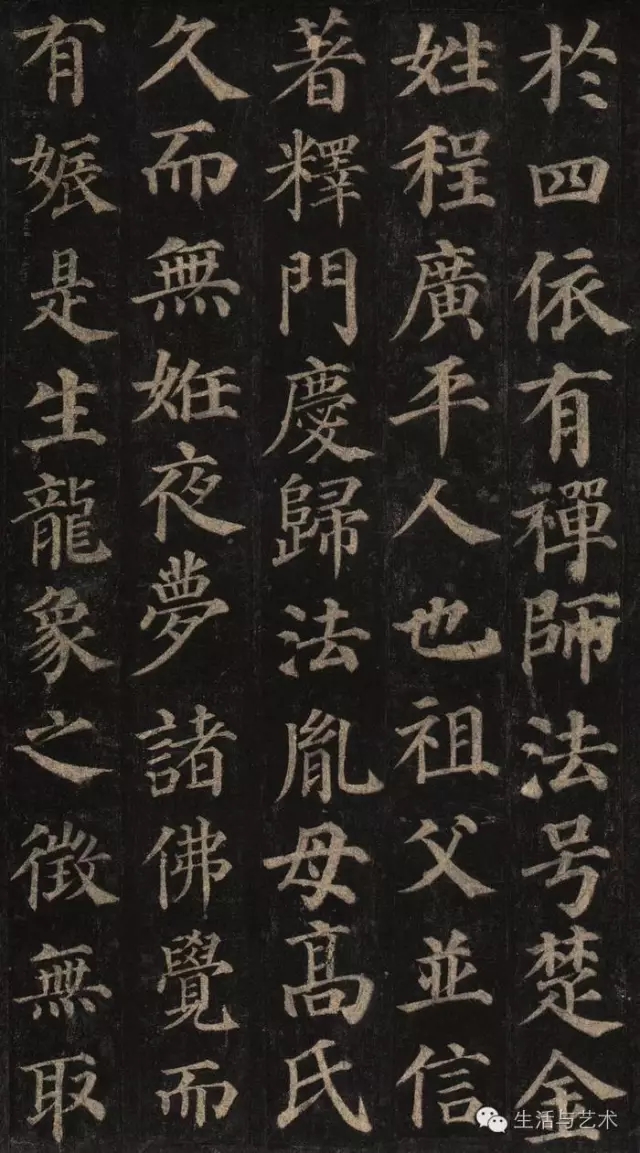 於四依有禪師法号楚金
姓程廣平人也祖父並信
著釋門慶歸法胤母高氏
久而無姙夜夢諸佛覺而
有娠是生龍象之徵無取
生活与艺术